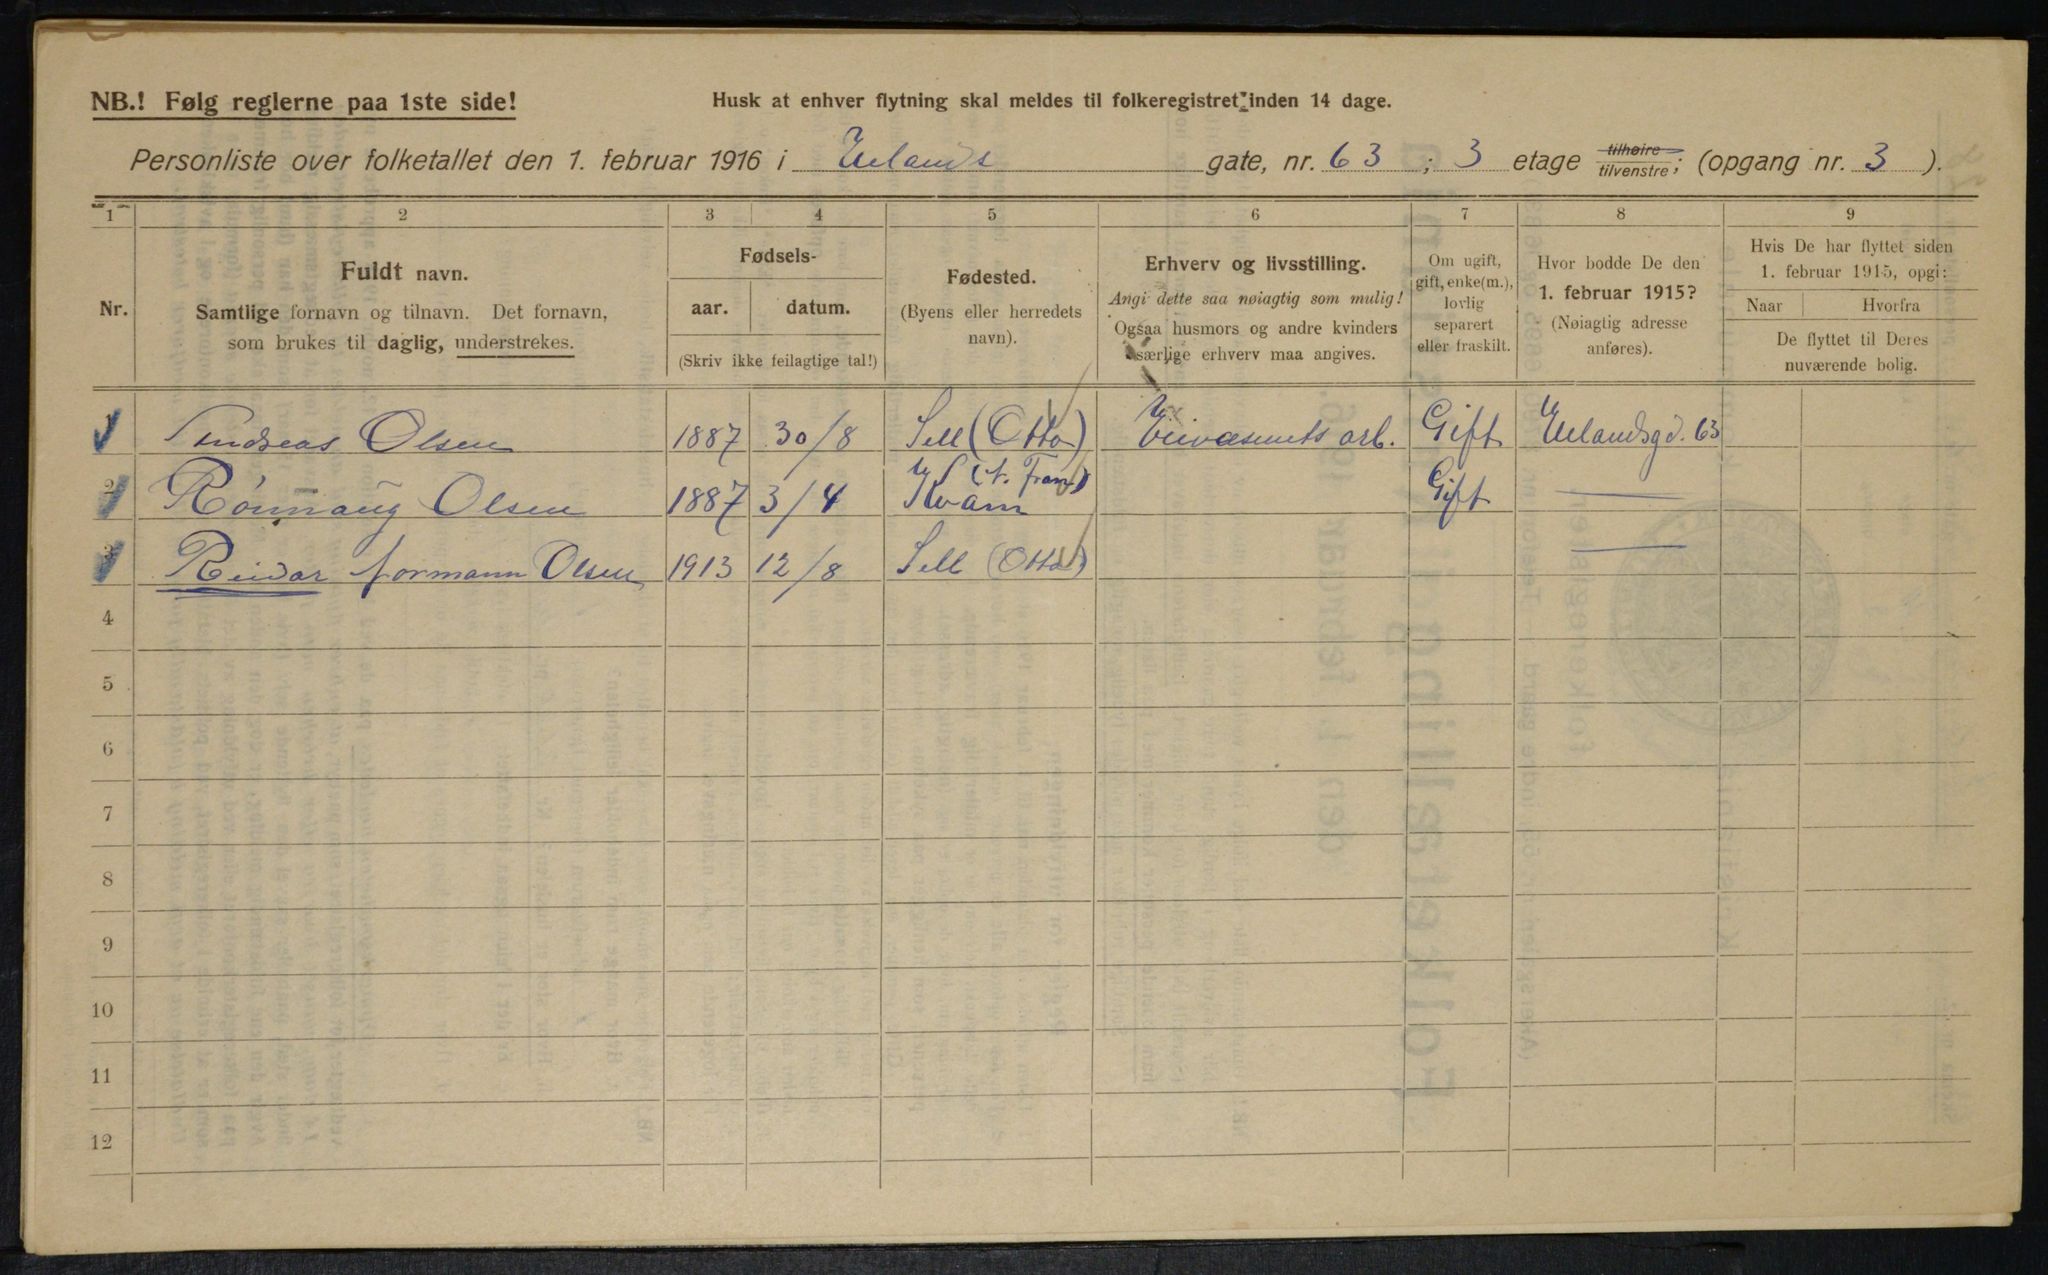 NB.! Følg reglerne paa 1ste side!
Husk at enhver flytning skal meldes til folkeregistret inden 14 dage.
Personliste over folketallet den 1. februar 1916 i Uelands gate, nr. 63 ; 3 etage tilhøire/tilvenstre; (opgang nr. 3 ).
1 2 3 4 5 6 7 8 9
Nr.
Fuldt navn.
Samtlige fornavn og tilnavn. Det fornavn,
som brukes til daglig, understrekes.
Fødsels-
aar. datum.
(Skriv ikke feilagtige tal!)
Fødested.
(Byens eller herredets
navn).
Erhverv og livsstilling.
Angi dette saa nøiagtig som mulig!
Ogsaa husmors og andre kvinders
særlige erhverv maa angives.
Om ugift,
gift, enke(m.),
lovlig
separert
eller fraskilt.
Hvor bodde De den
1. februar 1915?
(Nøiagtig adresse
anføres).
Hvis De har flyttet siden
1. februar 1915, opgi:
Naar Hvorfra
De flyttet til Deres
nuværende bolig.
1 Andreas Olsen 1887 30/8 Sell (Otta) arb. Gift Uelandsgd. 63
2 Rönnaug Olsen 1887 3/4 Kvam (N. Fron) Gift —
3 Reidar Normann Olsen 1913 12/8 Sell (Otta) —
4
5
6
7
8
9
10
11
12